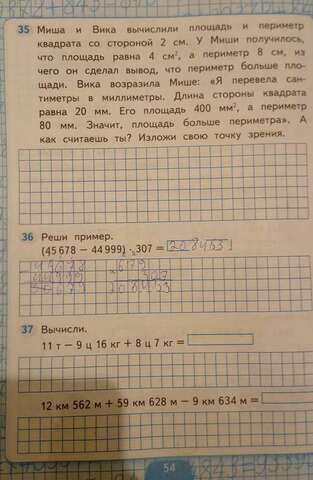 35 Миша и Вика вычислили площадь и периметр
квадрата со стороной 2 см. У Миши получилось,
что площадь равна 4 см², а периметр 8 см, из
чего он сделал вывод, что периметр больше пло-
щади. Вика возразила Мише: «Я перевела сан-
тиметры в миллиметры. Длина стороны квадрата
равна 20 мм. Его площадь 400 мм², а периметр
80 мм. Значит, площадь больше периметра». А
как считаешь ты? Изложи свою точку зрения.
36 Реши пример.
(45 678 − 44 999) · 307 = 208453
45678 679
44999 307
208453
37 Вычисли.
11 т − 9 ц 16 кг + 8 ц 7 кг =
12 км 562 м + 59 км 628 м − 9 км 634 м =
54